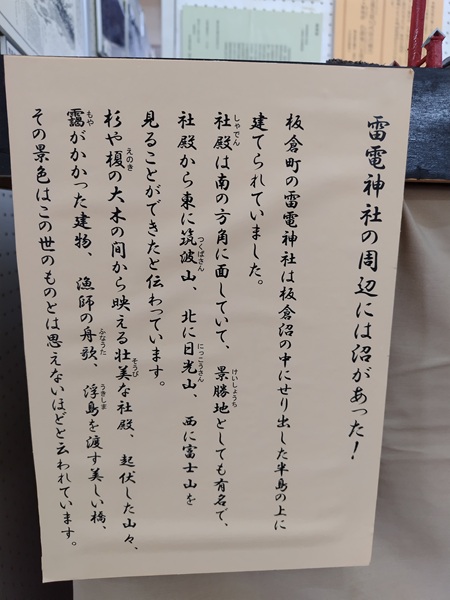 雷電神社の周辺には沼があった！
板倉町の雷電神社は板倉沼の中にせり出した半島の上に
建てられていました。
社殿は南の方角に面していて、景勝地としても有名で、
しゃでん
けいしょうち
社殿から東に筑波山、北に日光山、西に富士山を
つくばさん
にっこうさん
見ることができたと伝わっています。
杉や榎の大木の間から映える壮美な社殿、起伏した山々、
えのき
そうび
靄がかかった建物、漁師の舟歌、浮島を渡す美しい橋、
もや
ふなうた
うきしま
その景色はこの世のものとは思えないほどと云われています。